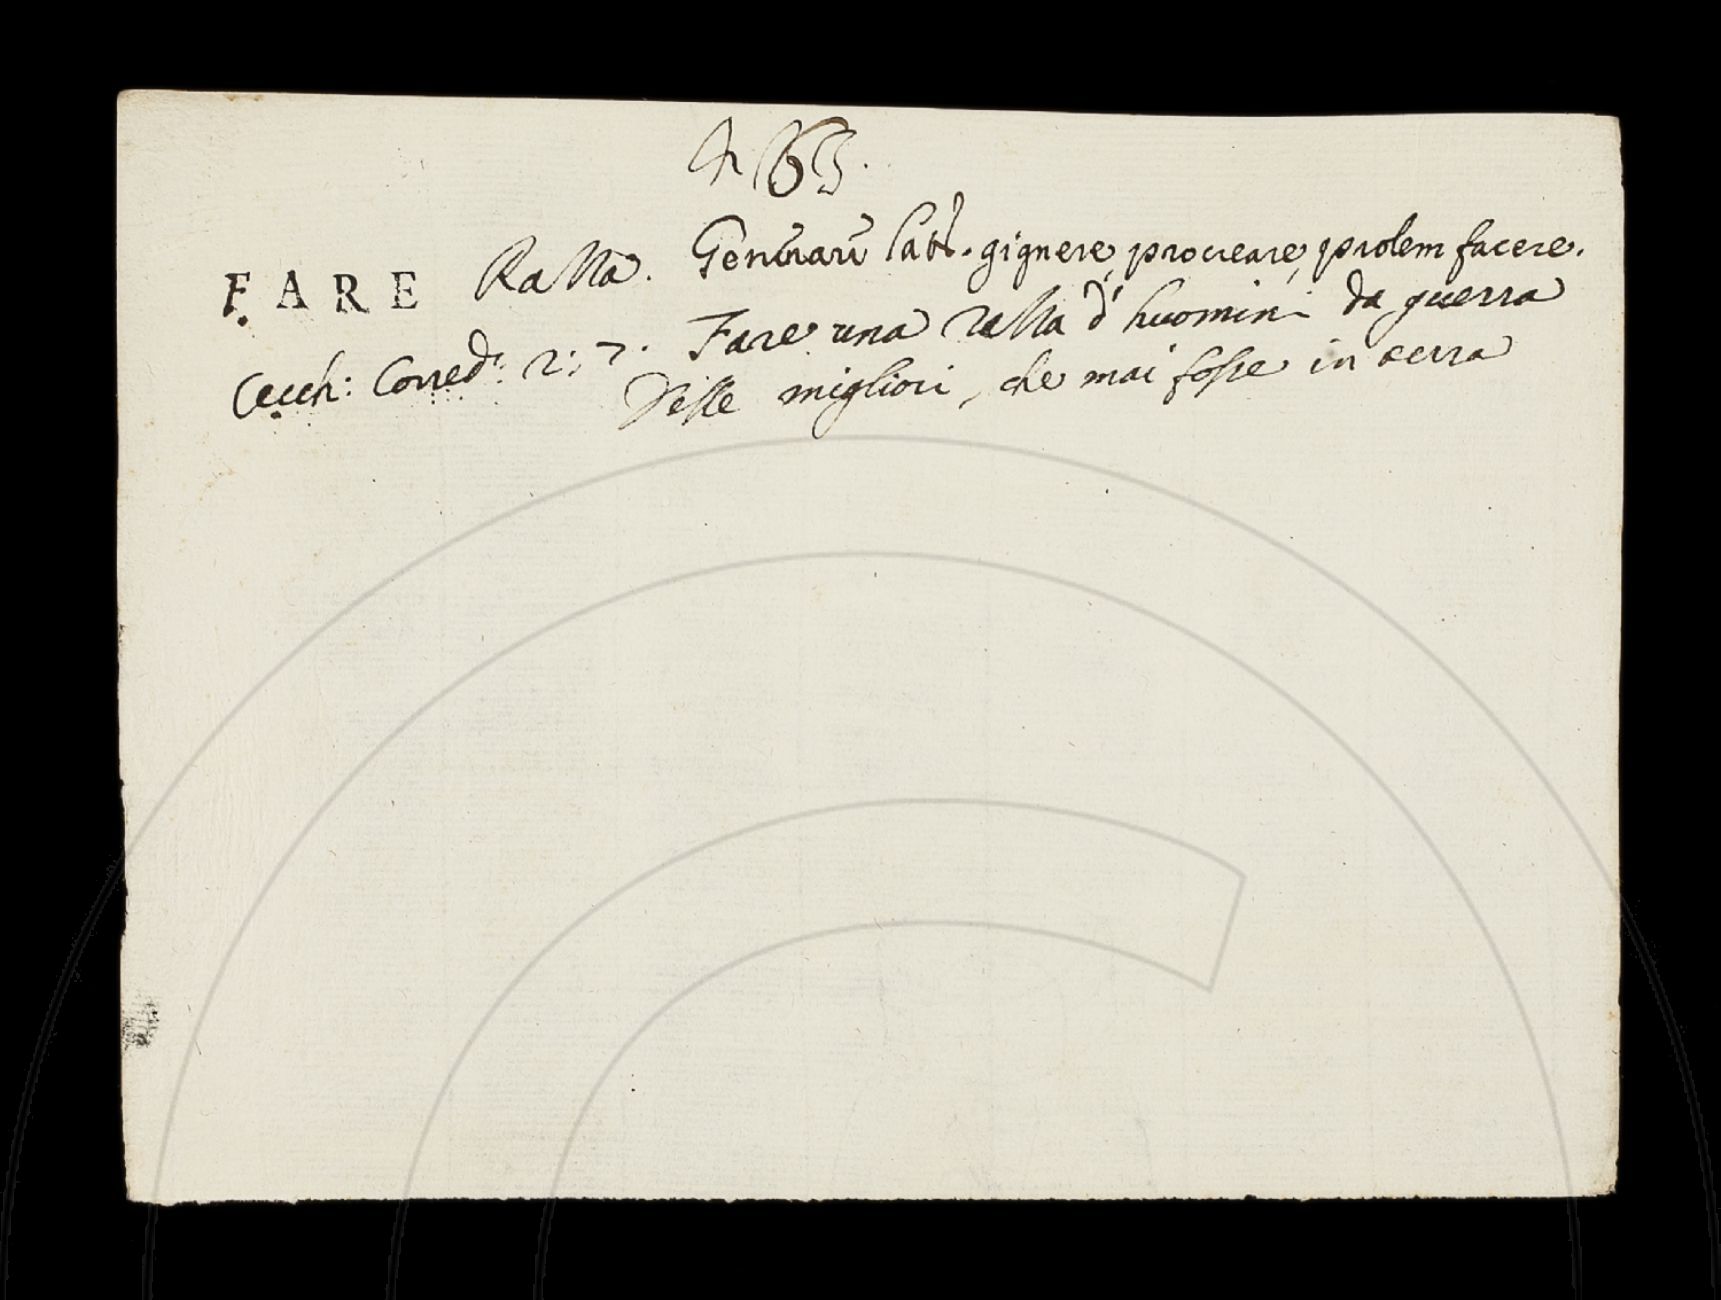 463.
FARE Razza. Generare latt. gignere, procreare, prolem facere.
Cecch: Corred: 2: 7. Fare una razza d'huomini da guerra
Delle migliori, che mai fosse in terra